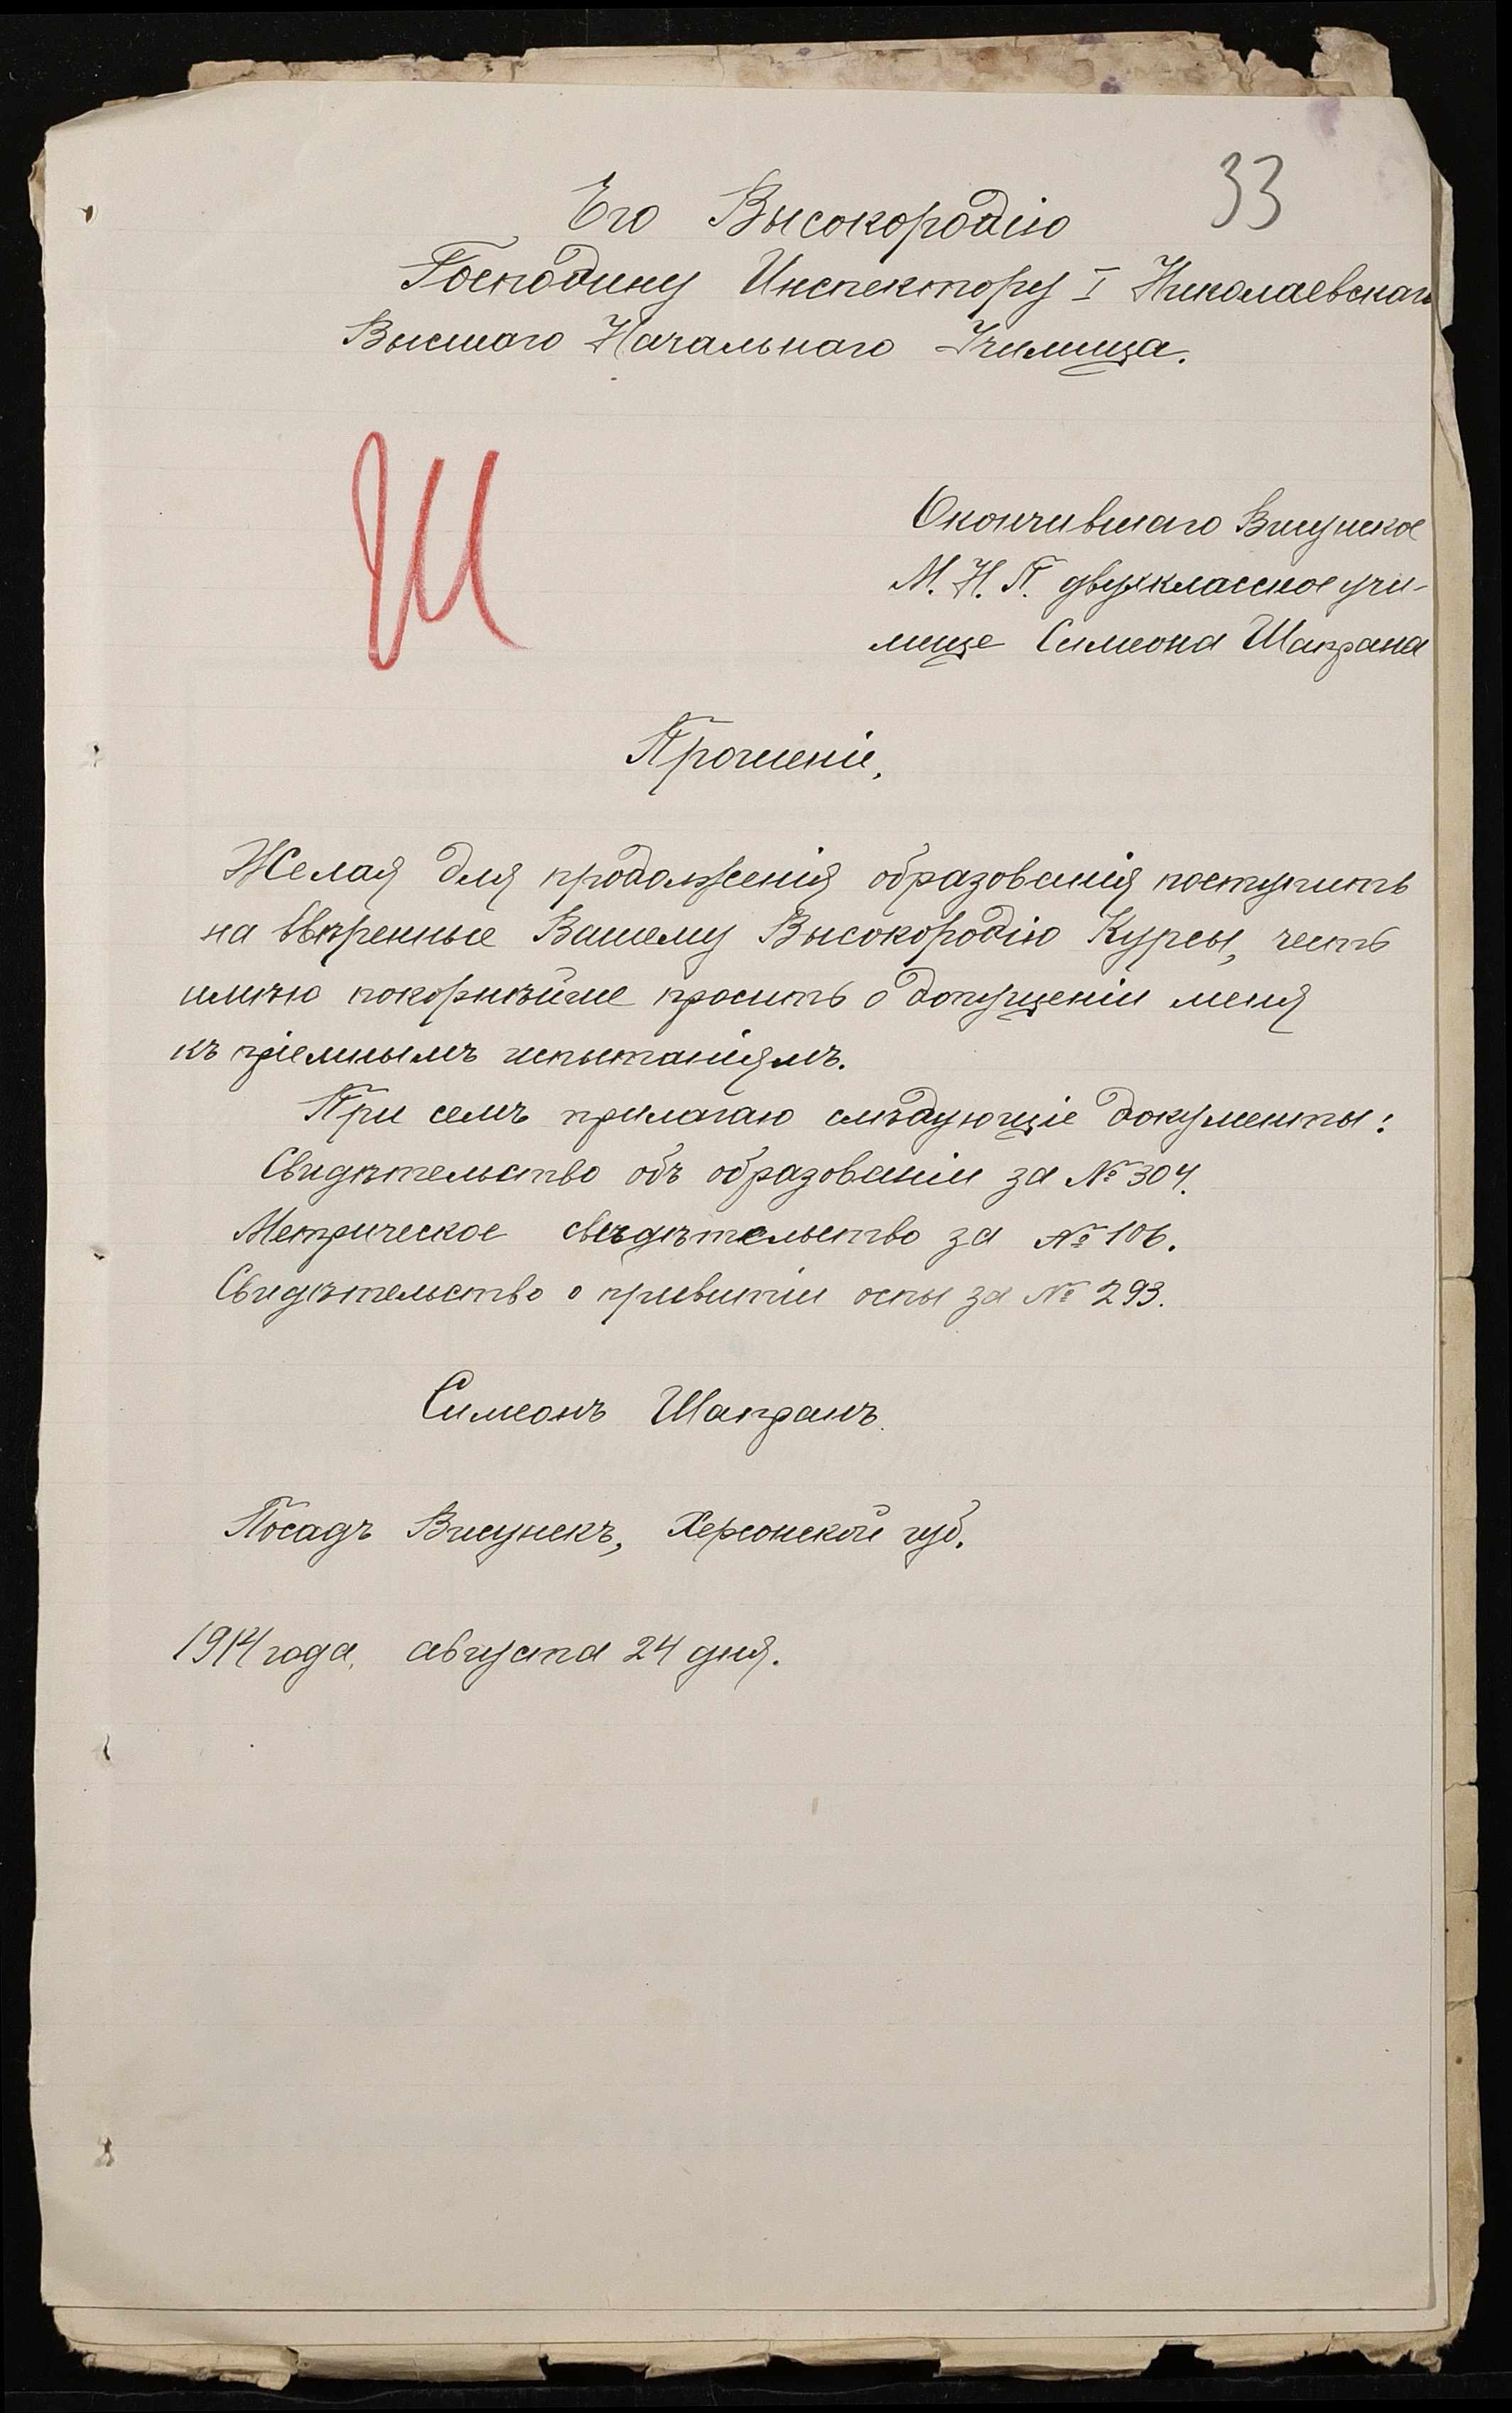 33
Его Высокородію
Господину Инспектору I Николаевскаго
Высшаго Начальнаго Училища.
Ш
Окончившаго Висунское
М. Н. П. двухклассное учи-
лище Симеона Шапрана
Прошеніе,
Желая для продолженія образованія поступить
на ввѣренные Вашему Высокородію Курсы, честь
имѣю покорнѣйше просить о допущеніи меня
къ пріемнымъ испытаніямъ.
При семъ прилагаю слѣдующіе документы:
Свидѣтельство объ образованіи за № 304.
Метрическое свѣдѣтельство за № 106.
Свидѣтельство о привитіи оспы за № 293.
Симеонъ Шапранъ.
Посадъ Висунскъ, Херсонской губ.
1914 года, августа 24 дня.